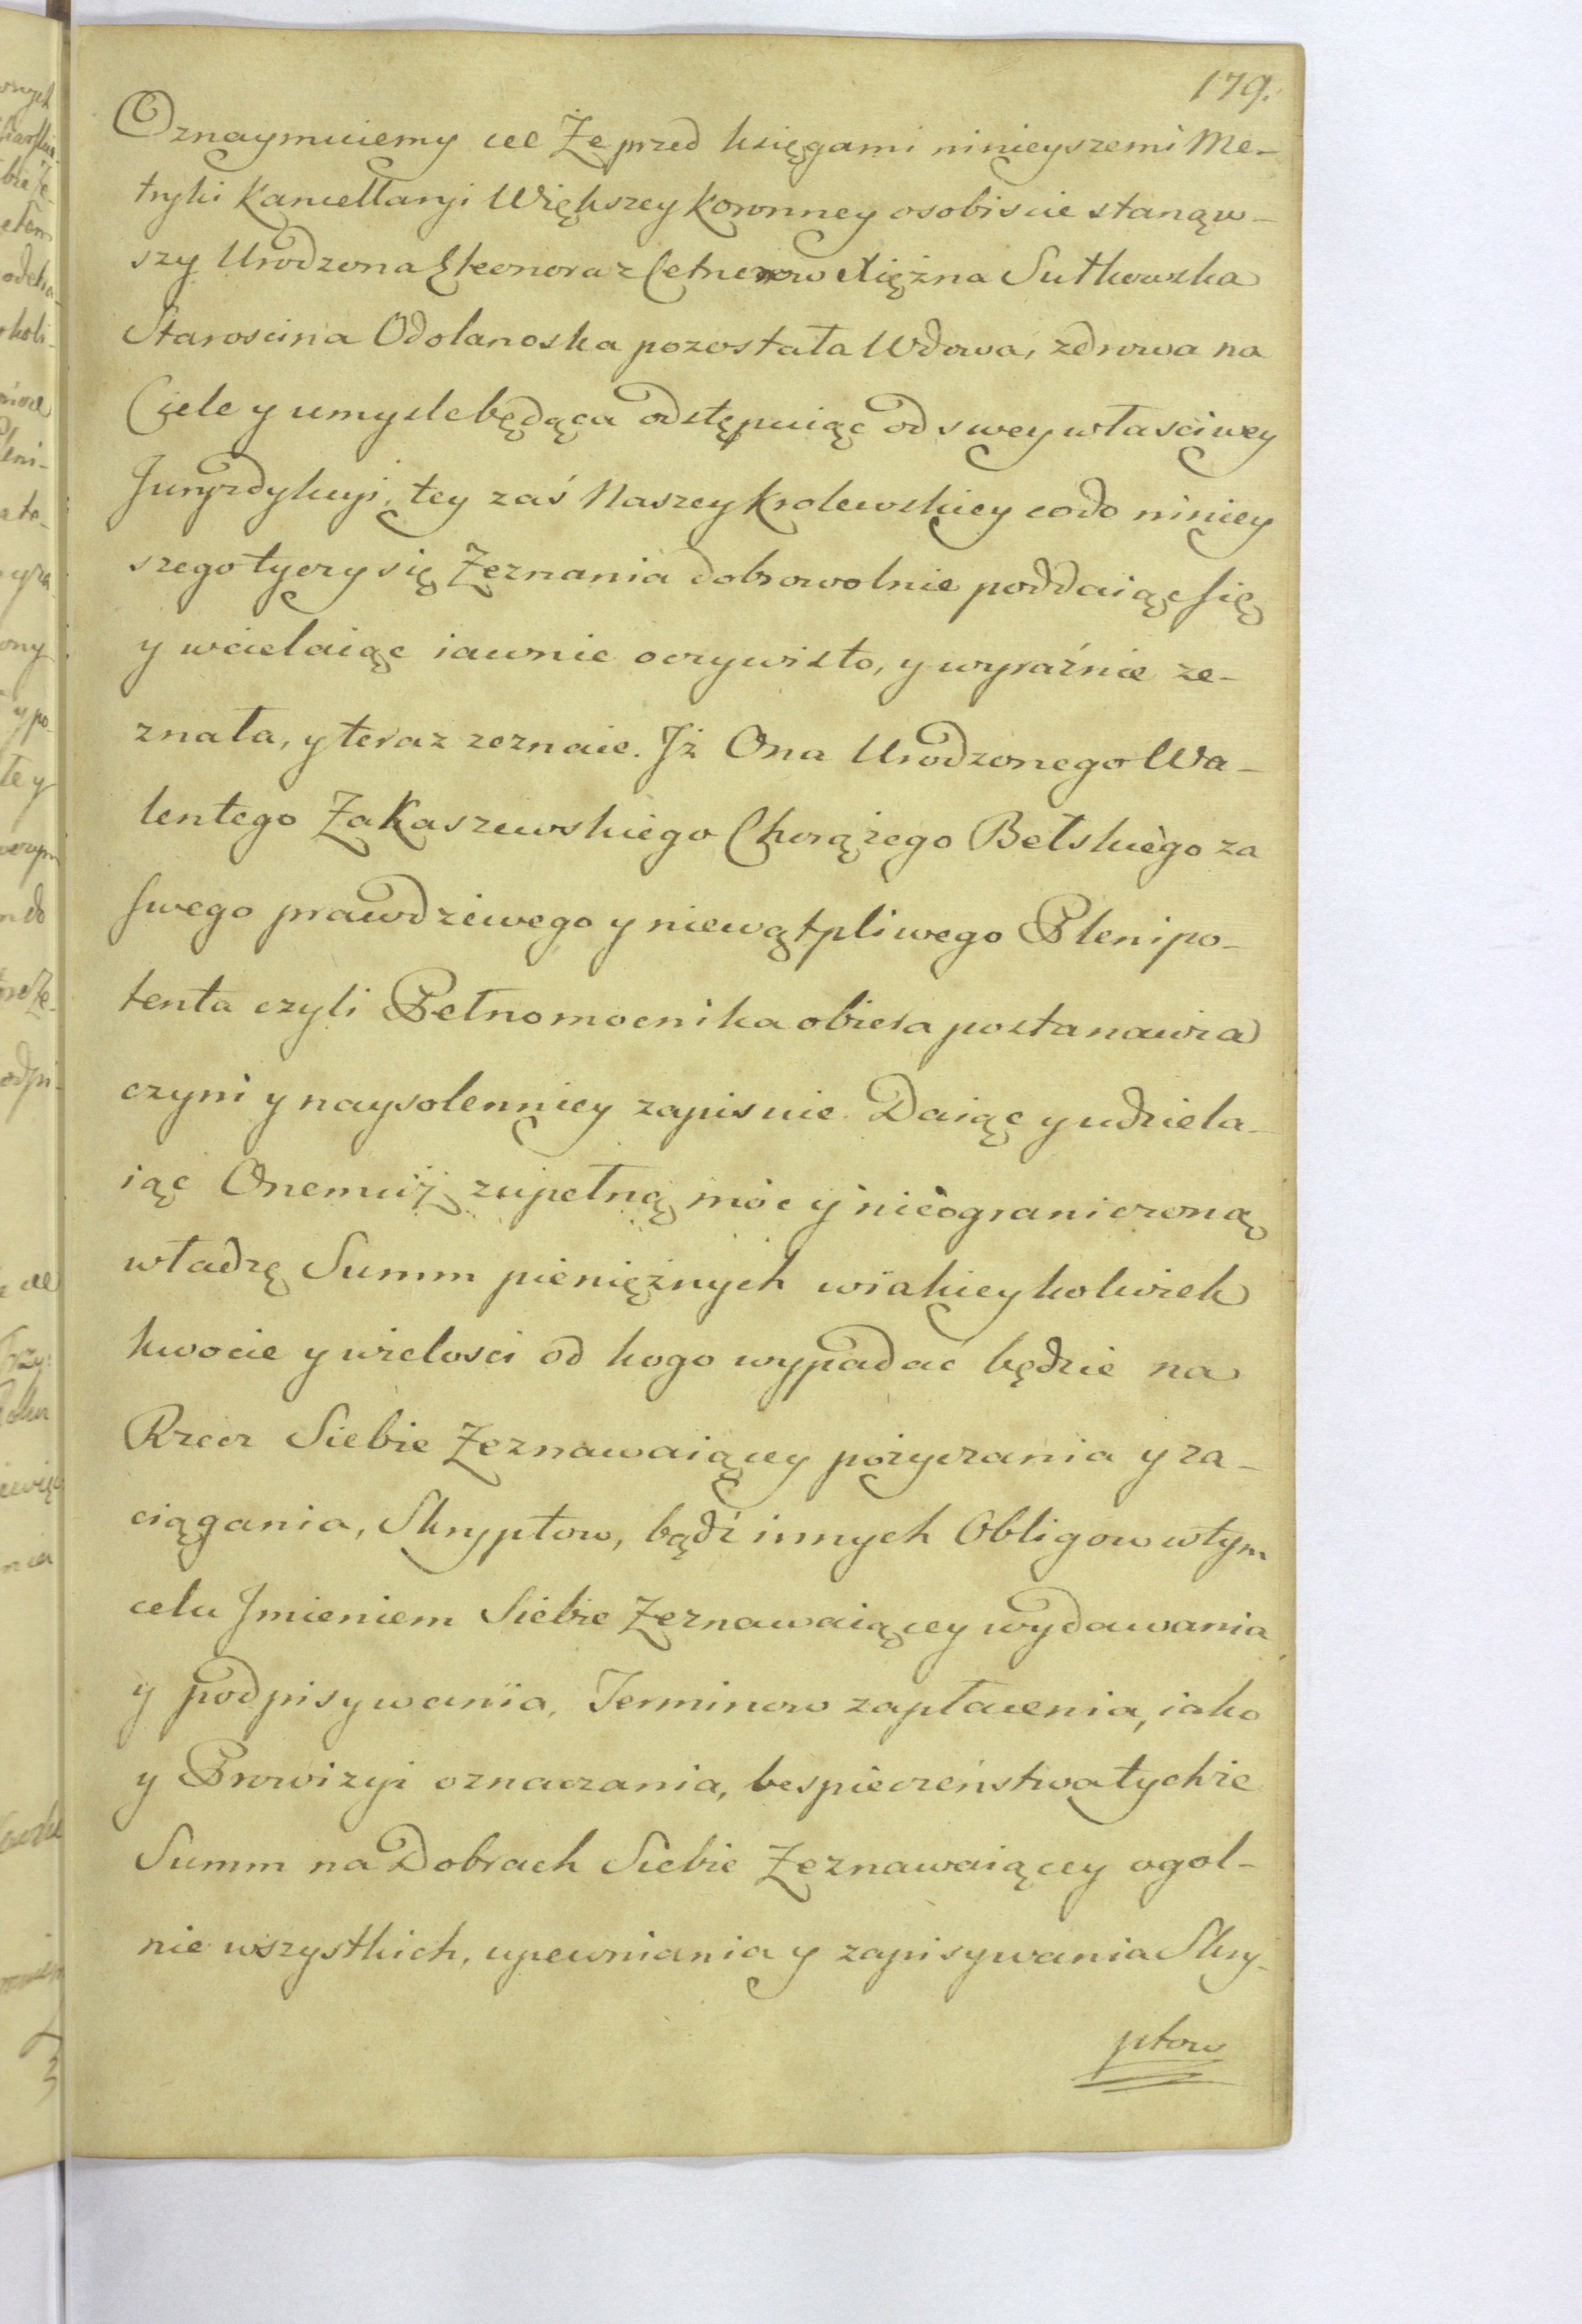 179.
Oznaymuiemy cee Że przed księgami ninieyszemi Me-
tryki Kancellaryi Większey Koronney osobiscie stanąw-
szy Urodzona Eleonora z Cetnerow Xiężna Sułkowska
Starościna Odolanoska pozostała Wdowa, zdrowa na
Ciele y umysle będąca odstępuiąc od swey własciwey
Juryzdykcyi, tey zaś Naszey Krolewskiey co do niniey
szego tyczy się Zeznania dobrowolnie poddaiąc się
y wcielaiąc iawnie oczywisto, y wyraźnie ze-
znała, y teraz zeznaie. Iż Ona Urodzonego Wa-
lentego Zakaszewskiego Chorążego Bełskiego za
swego prawdziwego y niewątpliwego Plenipo-
tenta czyli Pełnomocnika obiera postanawia
czyni y naysolenniey zapisuie. Daiąc y udziela-
iąc Onemuż zupełną móc y nieograniczoną
władzę Summ pieniężnych w iakieykolwiek
kwocie y wielosci od kogo wypadać będzie na
Rzecz Siebie Zeznawaiącey pożyczania y za-
ciągania, Skryptow, bądź innych Obligow w tym
celu Imieniem Siebie Zeznawaiącey wydawania
y podpisywania, Terminow zapłacenia, iako
y Prowizyi oznaczania, bespieczeństwa tychże
Summ na Dobrach Siebie Zeznawaiącey ogol-
nie wszystkich, upewniania y zapisywania Skry-
ptow